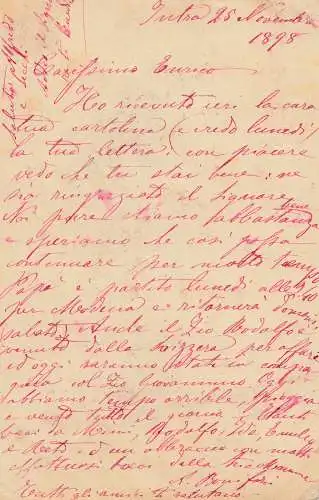 Intra 25 Novembre
1898
Carissimo Enrico
Ho ricevuto ieri la cara
tua cartolina (e credo lunedì)
la tua lettera; con piacere
vedo che tu stai bene; ne
sia ringraziato il Signore
Noi pure stiamo abbastanza bene
e speriamo che così possa
continuare per molto tempo
Papà è partito lunedì alle
per Modena e ritornerà domani,
sabato. Anche il Zio Rodolfo è
venuto dalla Svizzera per affari
ed oggi saranno stati in compa
gnia col Zio Giovannino. Oggi
abbiamo tempo orribile, pioggia
e vento tutto il giorno.
baci da Mimi, Rodolfo, Ida, Emilio
e
affettuosi baci dalla
Tutti gli amici ti salutano